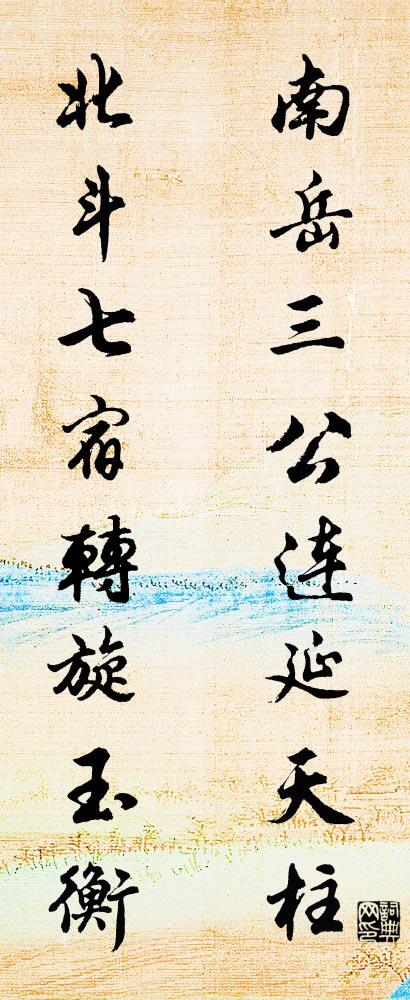 南岳三公連延天柱
北斗七宿轉旋玉衡
詞典网印